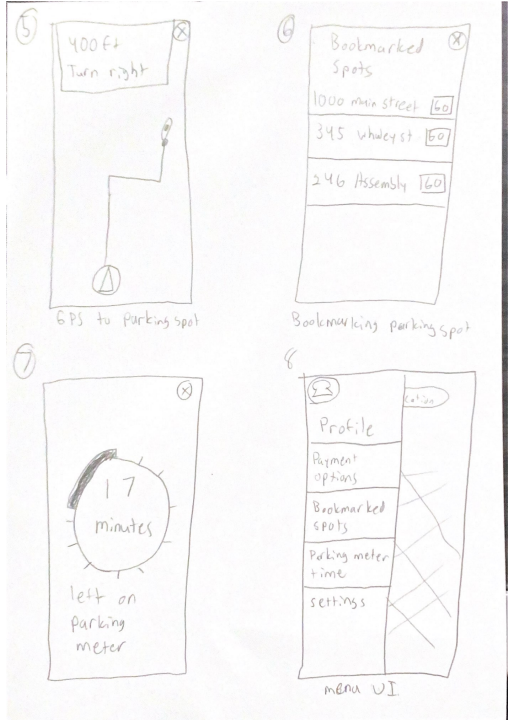 5
X
400 ft
Turn right
GPS to parking spot
6
X
Bookmarked
Spots
1000 main street GO
345 whaley st GO
246 Assembly GO
Bookmarking parking spot
7
X
17
minutes
left on
parking
meter
8
cation
Profile
Payment
options
Bookmarked
spots
Parking meter
time
settings
menu UI